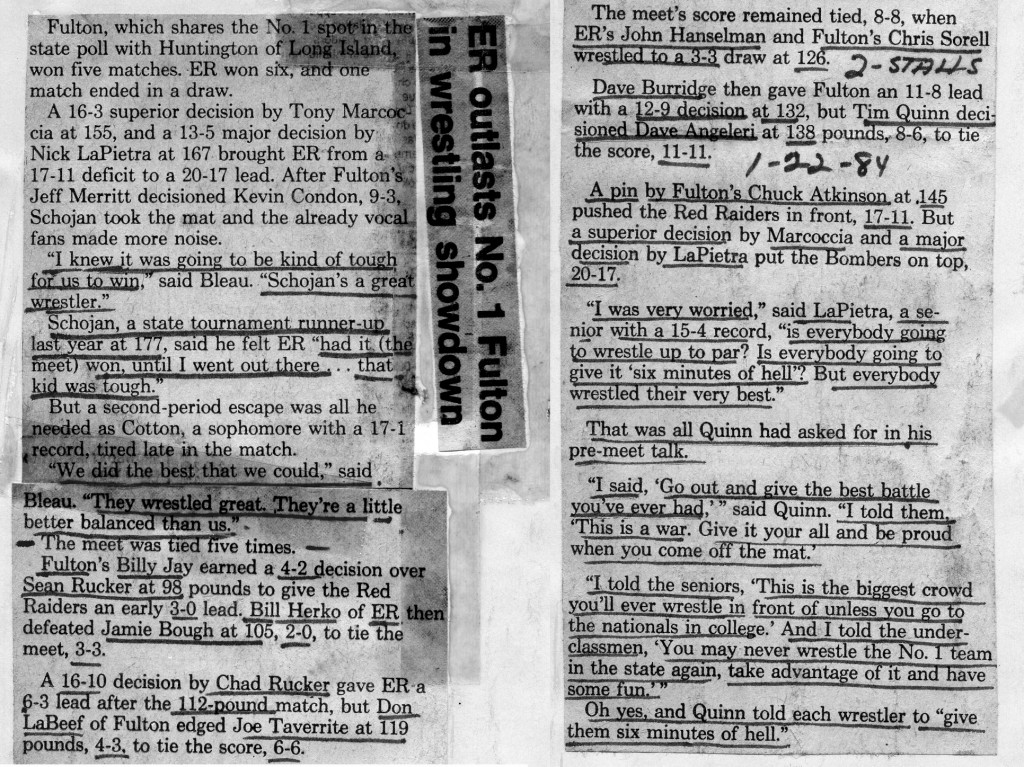 ER outlasts No. 1 Fulton
in wrestling showdown
Fulton, which shares the No. 1 spot in the
state poll with Huntington of Long Island,
won five matches. ER won six, and one
match ended in a draw.
A 16-3 superior decision by Tony Marcoc-
cia at 155, and a 13-5 major decision by
Nick LaPietra at 167 brought ER from a
17-11 deficit to a 20-17 lead. After Fulton's
Jeff Merritt decisioned Kevin Condon, 9-3,
Schojan took the mat and the already vocal
fans made more noise.
“I knew it was going to be kind of tough
for us to win,” said Bleau. “Schojan's a great
wrestler.”
Schojan, a state tournament runner-up
last year at 177, said he felt ER “had it (the
meet) won, until I went out there . . . that
kid was tough.”
But a second-period escape was all he
needed as Cotton, a sophomore with a 17-1
record, tired late in the match.
“We did the best that we could,” said
Bleau. “They wrestled great. They're a little
better balanced than us.”
The meet was tied five times.
Fulton's Billy Jay earned a 4-2 decision over
Sean Rucker at 98 pounds to give the Red
Raiders an early 3-0 lead. Bill Herko of ER then
defeated Jamie Bough at 105, 2-0, to tie the
meet, 3-3.
A 16-10 decision by Chad Rucker gave ER a
6-3 lead after the 112-pound match, but Don
LaBeef of Fulton edged Joe Taverrite at 119
pounds, 4-3, to tie the score, 6-6.
The meet's score remained tied, 8-8, when
ER's John Hanselman and Fulton's Chris Sorell
wrestled to a 3-3 draw at 126.
2-STALLS
Dave Burridge then gave Fulton an 11-8 lead
with a 12-9 decision at 132, but Tim Quinn deci-
sioned Dave Angeleri at 138 pounds, 8-6, to tie
the score, 11-11.
1-22-84
A pin by Fulton's Chuck Atkinson at 145
pushed the Red Raiders in front, 17-11. But
a superior decision by Marcoccia and a major
decision by LaPietra put the Bombers on top,
20-17.
“I was very worried,” said LaPietra, a se-
nior with a 15-4 record, “is everybody going
to wrestle up to par? Is everybody going to
give it ‘six minutes of hell’? But everybody
wrestled their very best.”
That was all Quinn had asked for in his
pre-meet talk.
“I said, ‘Go out and give the best battle
you've ever had,’ ” said Quinn. “I told them,
‘This is a war. Give it your all and be proud
when you come off the mat.’
“I told the seniors, ‘This is the biggest crowd
you'll ever wrestle in front of unless you go to
the nationals in college.’ And I told the under-
classmen, ‘You may never wrestle the No. 1 team
in the state again, take advantage of it and have
some fun.’ ”
Oh yes, and Quinn told each wrestler to “give
them six minutes of hell.”